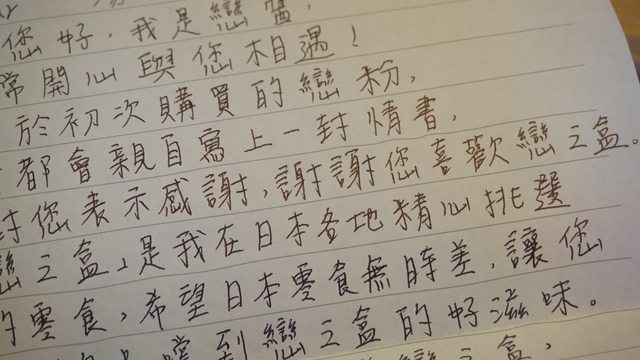 您好,我是戀
常開心與您相遇!
於初次購買的戀粉,
都會親自寫上一封情書,
對您表示感謝,謝謝您喜歡戀之盒。
戀之盒」是我在日本各地精心挑選
的零食,希望日本零食無時差,讓您
嚐到戀之盒的好滋味。
戀之盒,